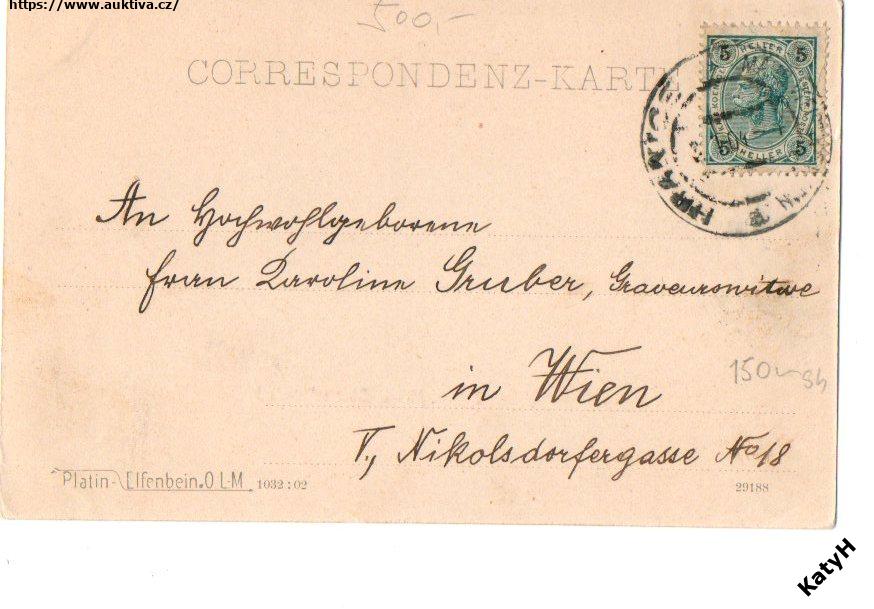 https://www.auktiva.cz/
500,-
CORRESPONDENZ-KARTE
5 HELLER 5
5 HELLER 5
HRANICE
An Hochwohlgeborene
Frau Karoline Gruber, Graveurswitwe
in Wien
150
V., Nikolsdorfergasse No 18
Platin-Elfenbein.O L-M 1032:02
29188
KatyH